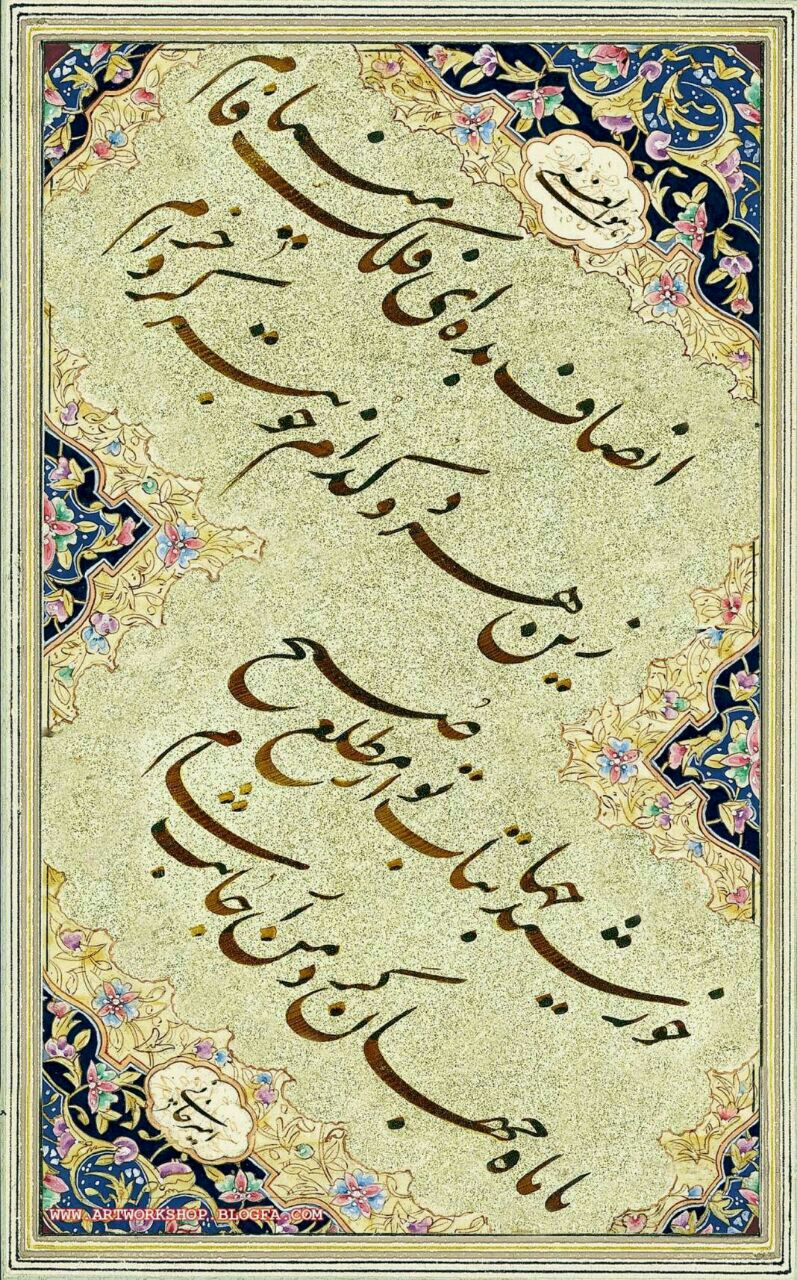 انصاف بده ای فلک مینا فام
زین هر دو کدام خوبتر کرد خرام
خورشید جهانتاب تو از مطلع صبح
یا ماه جهان گرد من از جانب شام
امیرخانی
WWW.ARTWORKSHOP.BLOGFA.COM